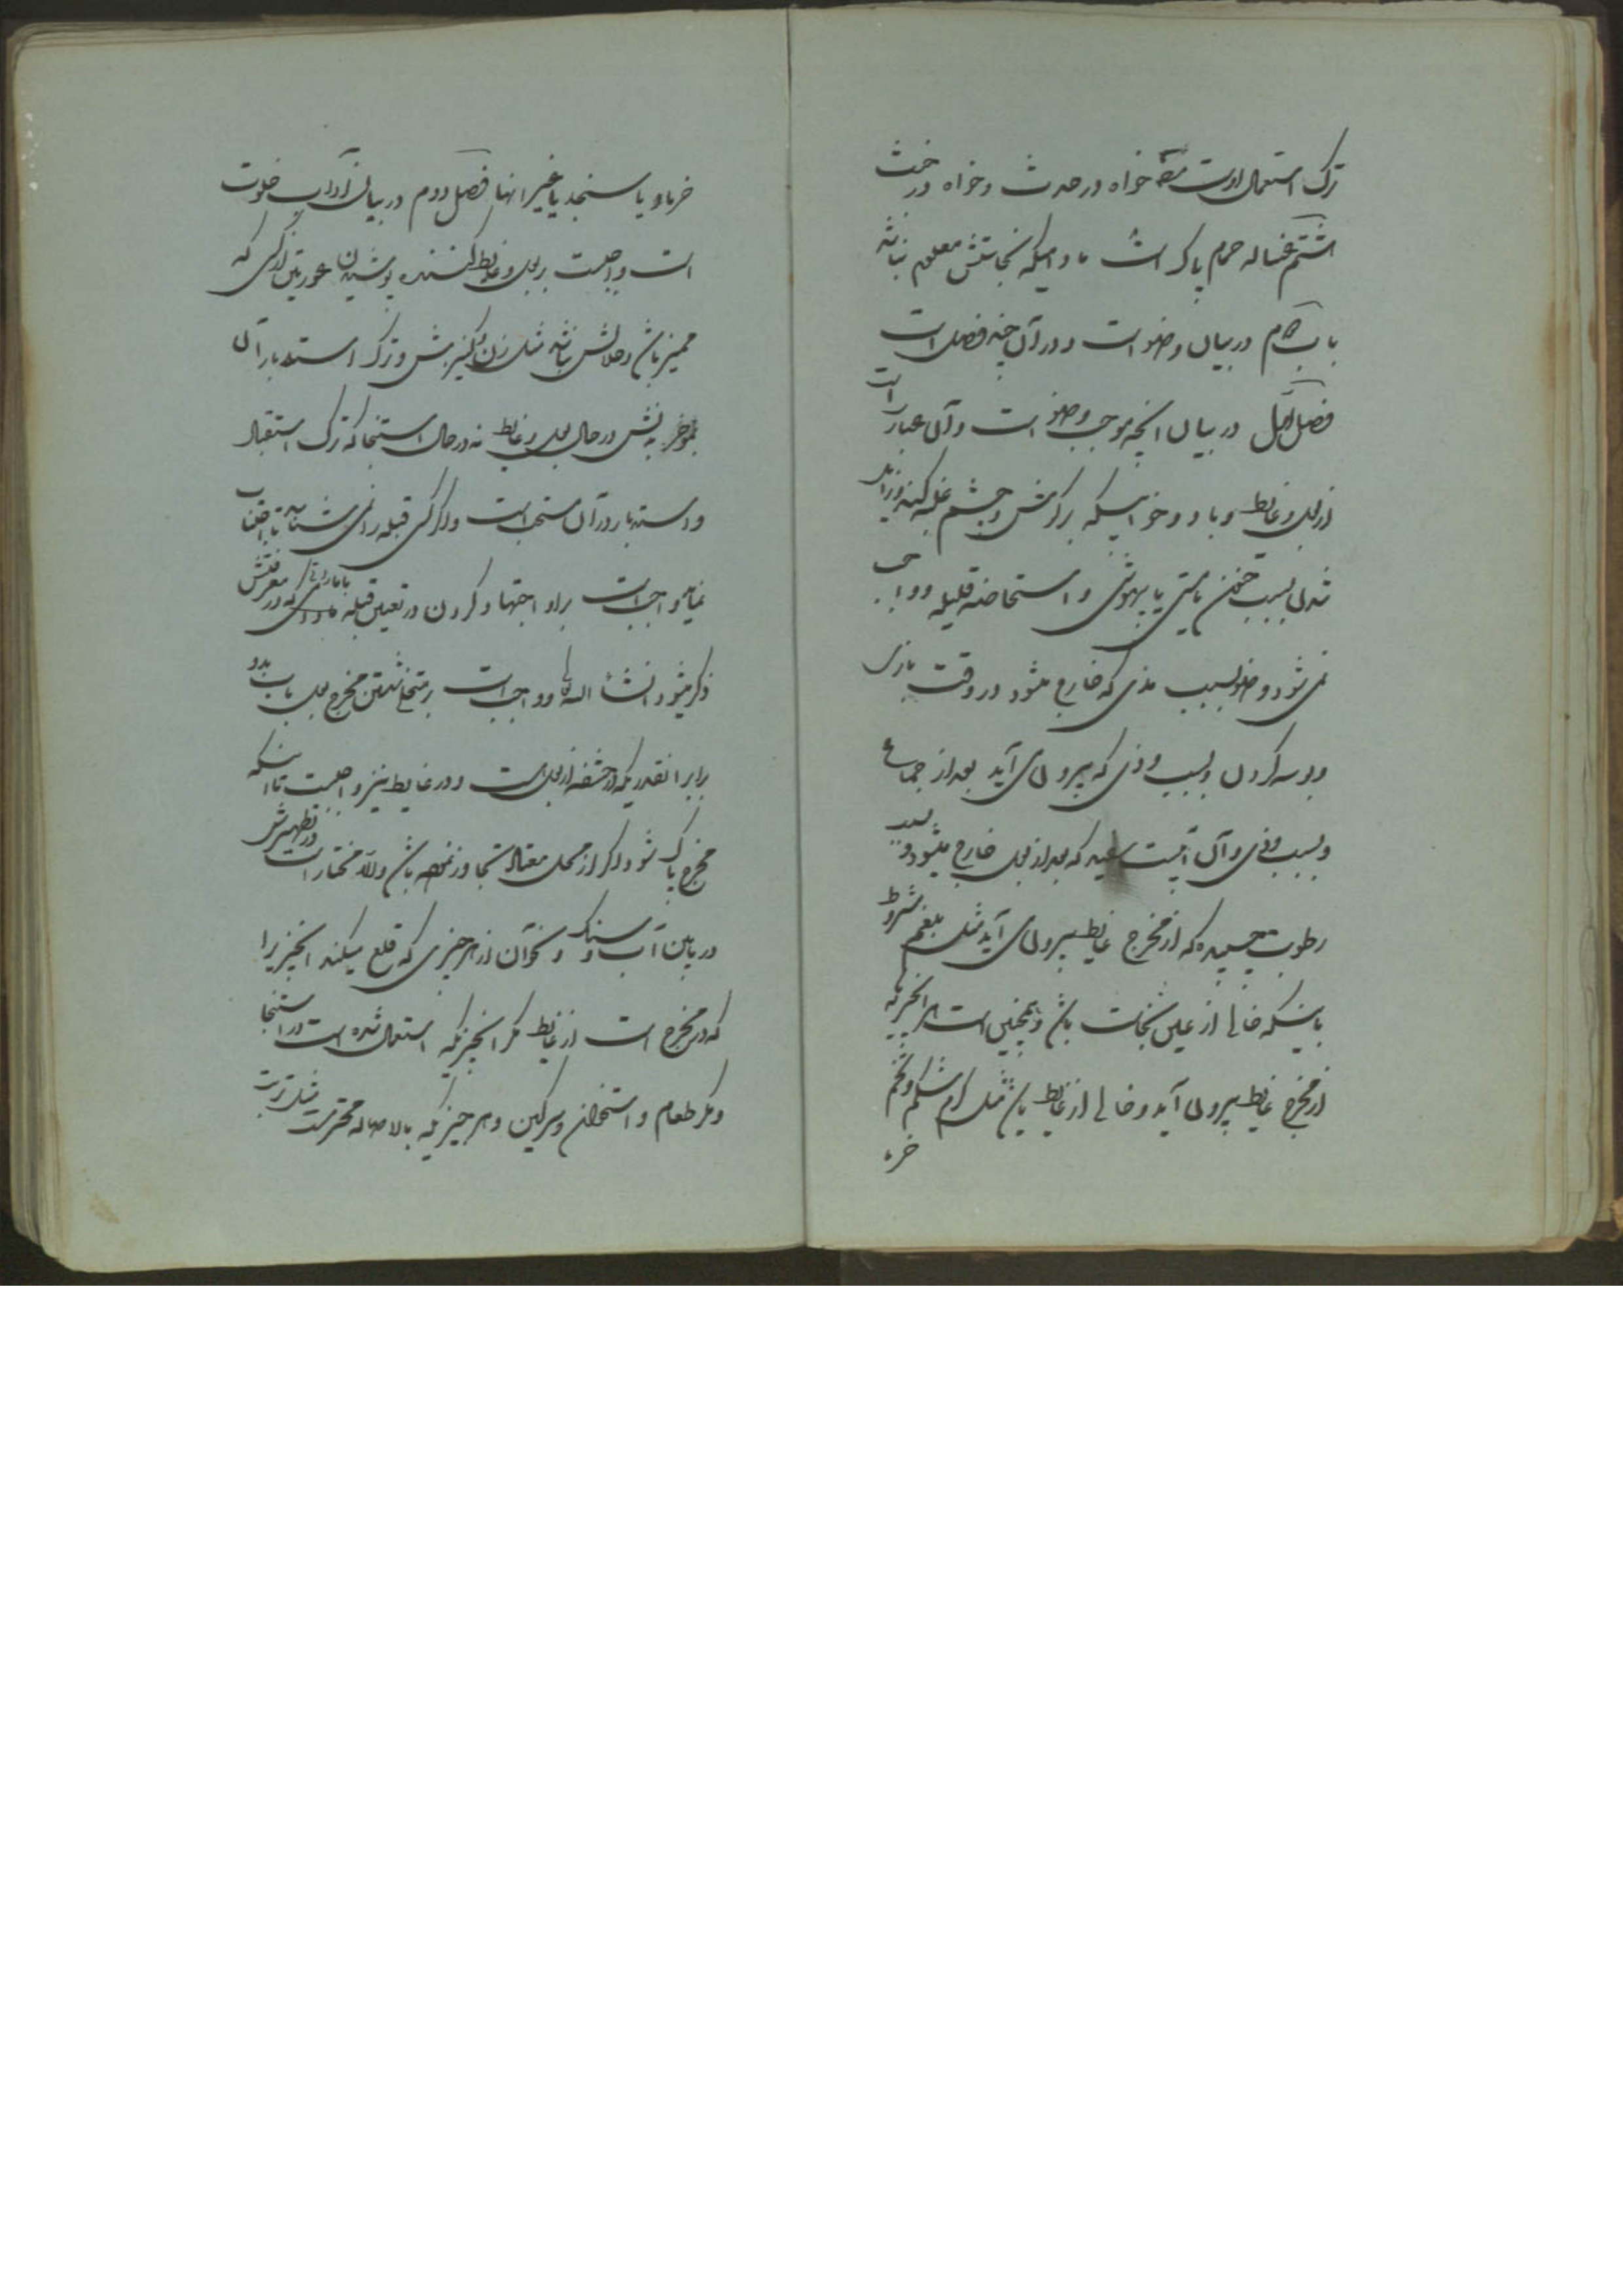 ترک استعمال اوست مطلقا خواه در حدث و خواه در خبث
هشتم غساله حمام پاک است مادامیکه نجاستش معلوم نباشد
باب دوم در بیان وضو است و در آن چند فصل است
فصل اول در بیان آنچه موجب وضو است و آن عبارت است
از بول و غایط و باد و خوابیکه بر گوش و چشم غلبه کند و زائل
شدن بسبب جنون یا مستی یا بیهوشی و استحاضه قلیله و واجب
نمی شود وضو بسبب مذی که خارج میشود در وقت بازی
و بوسه کردن و بسبب وذی که بیرون می آید بعد از جماع
و بسبب ودی و آن آبیست سفید که بعد از بول خارج میشود و بسبب
رطوبت چسپیده که از مخرج غایط بیرون می آید مثل بلغم بشروط
باینکه خالی از عین نجاست باشد و همچنین است هر انچیزیکه
از مخرج غایط بیرون می آید و خالی از غایط باشد مثل کرم شکم و تخم
خرما
خرما و یا سنجد یا غیر انها فصل دوم در بیان آداب خلوت
است واجبست بر بول و غایط کننده پوشیدن عورتین از کسی که
ممیز باشد و حلالش نباشد مثل زن و کنیزش و ترک استدبار آن
بموخر بدنش در حال بول و غایط نه در حال استنجا که ترک استقبال
و استدبار در آن مستحب است و اگر کسی قبله را نمی شناسد تا اجتناب
نماید واجب است بر او اجتهاد کردن در تعیین قبله باماراتی که در معرفتش
ذکر میشود انشاء الله تعالی و واجب است بر متخلی شستن مخرج بول بآب بدو
برابر انقدریکه در حشفه از بول است و در غایط نیز واجبست تا اینکه
مخرج پاک شود اگر از محل معتاد تجاوز نموده باشد و الا مختار است در تطهیرش
در بین آب و سنگ و نحو آن از هر چیزی که قلع میکند انچیز را
که در مخرج است از غایط مگر انچیزیکه استعمال شده است در استنجا
و مگر طعام و استخوان و سرگین و هر چیزیکه بالاصاله محترمست مثل تربت